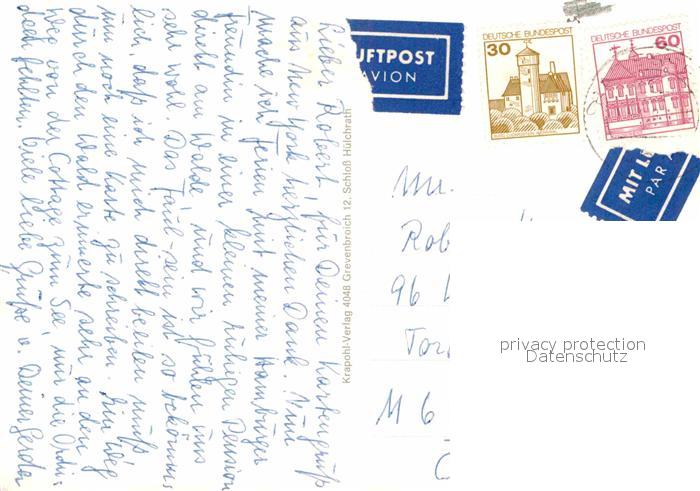 Lieber Robert! für Deinen Kartengruß
aus New York herzlichen Dank. Nun
mache ich Ferien mit meiner Hamburger
Freundin in einer kleinen ruhigen Pension
direkt am Walde und wir fühlen uns
sehr wohl. Das Faul-sein ist so bekömm-
lich, daß ich mich direkt beeilen muß
nur noch eine Karte zu schreiben. Ein Weg
durch den Wald erinnerte sehr an den
Weg von der Cottage zum See, nur die
doch fehlen. Viele liebe Grüße v. Deiner Gerda
Krapohl-Verlag 4048 Grevenbroich 12, Schloß Hülchrath
LUFTPOST
AVION
DEUTSCHE BUNDESPOST
30
DEUTSCHE BUNDESPOST
60
MIT L
PAR A
Mr.
Rob
96
Tor
M 6
C
privacy protection
Datenschutz